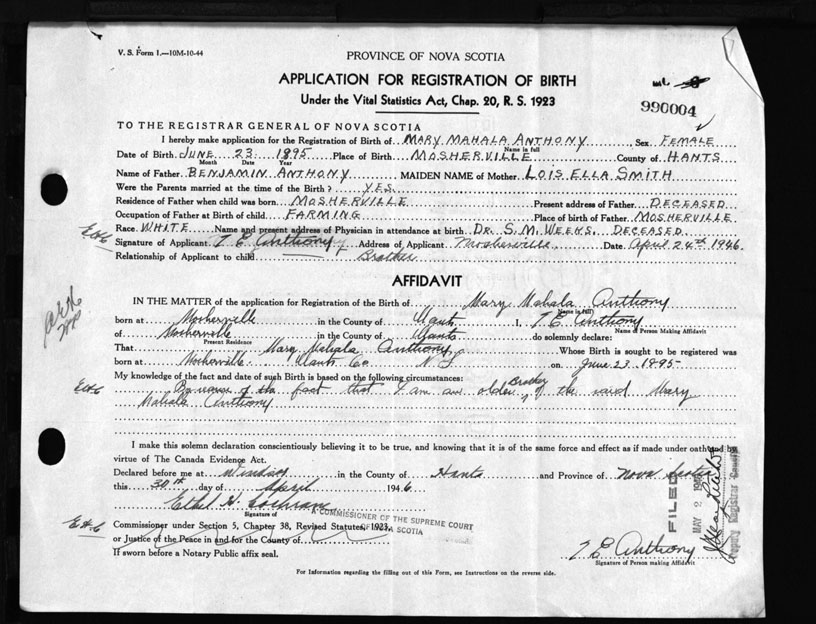 V. S. Form 1.—10M-10-44
PROVINCE OF NOVA SCOTIA
APPLICATION FOR REGISTRATION OF BIRTH
Under the Vital Statistics Act, Chap. 20, R. S. 1923
990004
TO THE REGISTRAR GENERAL OF NOVA SCOTIA
I hereby make application for the Registration of Birth of MARY MAHALA ANTHONY, Sex FEMALE
Name in full
Date of Birth JUNE 23 1895 Place of Birth MOSHERVILLE County of HANTS
Month Date Year
Name of Father BENJAMIN ANTHONY MAIDEN NAME of Mother LOIS ELLA SMITH
Were the Parents married at the time of the Birth? YES.
Residence of Father when child was born MOSHERVILLE Present address of Father DECEASED
Occupation of Father at Birth of child FARMING Place of birth of Father MOSHERVILLE
Race WHITE Name and present address of Physician in attendance at birth DR. S. M. WEEKS, DECEASED
EHC Signature of Applicant T E Anthony Address of Applicant Mosherville Date April 24th 1946
Relationship of Applicant to child Brother
AFFIDAVIT
IN THE MATTER of the application for Registration of the Birth of Mary Mahala Anthony
Name in full
born at Mosherville in the County of Hants I, T E Anthony
Name of Person Making Affidavit
of Mosherville in the County of Hants do solemnly declare:
Present Residence
That Mary Mahala Anthony Whose Birth is sought to be registered was
born at Mosherville Hants Co N S on June 23 1895
My knowledge of the fact and date of such Birth is based on the following circumstances:
EHC By reason of the fact that I am an older Brother of the said Mary
Mahala Anthony
I make this solemn declaration conscientiously believing it to be true, and knowing that it is of the same force and effect as if made under oath and by
virtue of The Canada Evidence Act.
Declared before me at Windsor in the County of Hants and Province of Nova Scotia
this 30th day of April 1946
Ethel H. Cochran
Signature of
A COMMISSIONER OF THE SUPREME COURT
OF NOVA SCOTIA
EHC Commissioner under Section 5, Chapter 38, Revised Statutes, 1923,
or Justice of the Peace in and for the County of
If sworn before a Notary Public affix seal.
T E Anthony
Signature of Person making Affidavit
FILED
MAY 2 1946
Deputy Registrar General
For Information regarding the filling out of this Form, see Instructions on the reverse side.